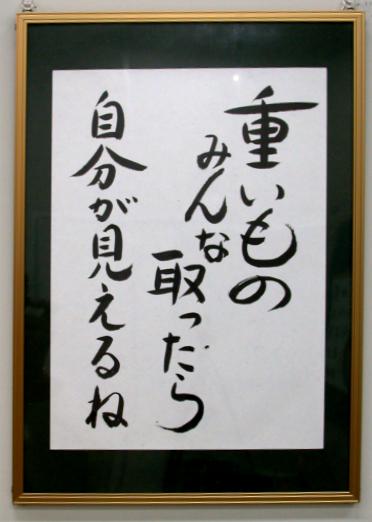 重いもの
みんな
取ったら
自分が見えるね